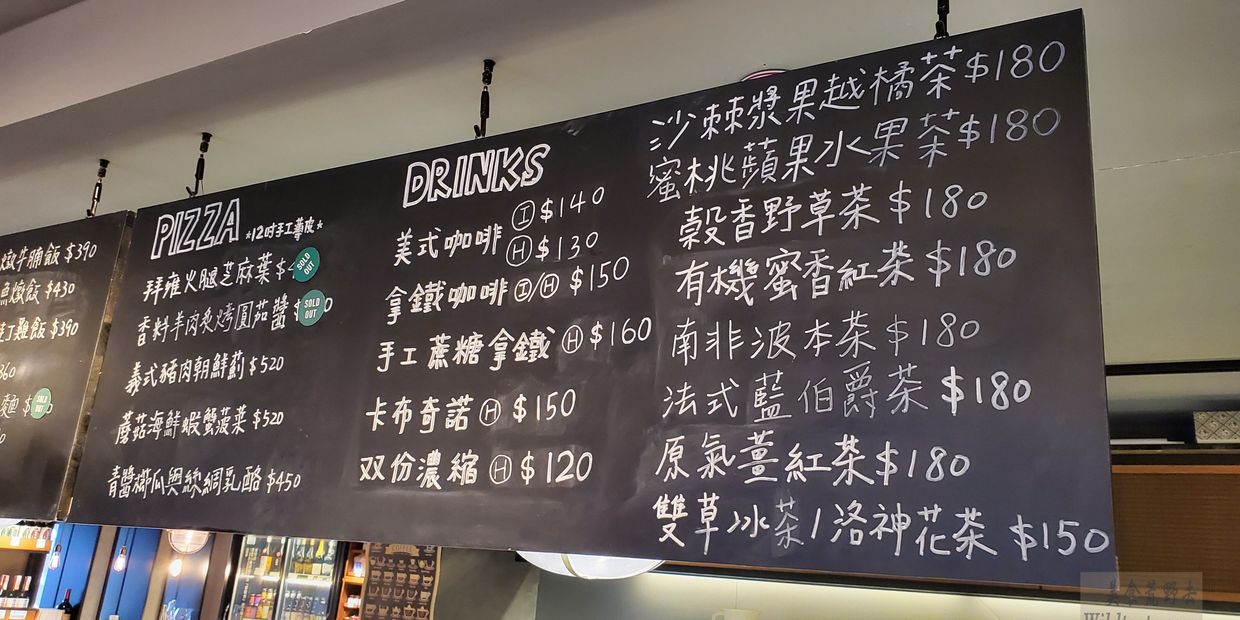 燉牛腩飯 $390
魚燉飯 $430
丁雞飯 $390
360
麵 $
SOLD OUT
PIZZA *12吋手工薄皮*
拜雍火腿芝麻葉 $4
SOLD OUT
香料羊肉炙烤圓茄醬 $
SOLD OUT
義式豬肉朝鮮薊 $520
蘑菇海鮮蝦蟹菠菜 $520
青醬櫛瓜與絲綢乳酪 $450
DRINKS
美式咖啡 Ⓘ $140
Ⓗ $130
拿鐵咖啡 Ⓘ/Ⓗ $150
手工蔗糖拿鐵 Ⓗ $160
卡布奇諾 Ⓗ $150
双份濃縮 Ⓗ $120
沙棘漿果越橘茶 $180
蜜桃蘋果水果茶 $180
穀香野草茶 $180
有機蜜香紅茶 $180
南非波本茶 $180
法式藍伯爵茶 $180
原氣薑紅茶 $180
雙草冰茶/洛神花茶 $150